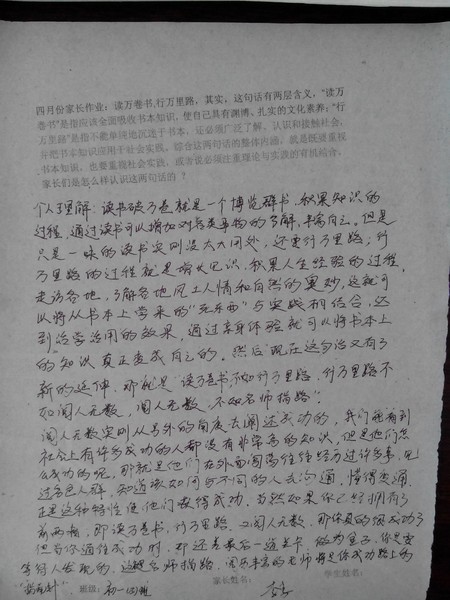 四月份家长作业：读万卷书,行万里路，其实，这句话有两层含义，“读万
卷书”是指应该全面吸收书本知识，使自己具有渊博、扎实的文化素养；“行
万里路”是指不能单纯地沉迷于书本，还必须广泛了解、认识和接触社会，
并把书本知识应用于社会实践。综合这两句话的整体内涵，就是既要重视
书本知识，也要重视社会实践，或者说必须注重理论与实践的有机结合，
家长们是怎么样认识这两句话的？
个人理解：读书破万卷就是一个博览群书，获取知识的
过程，通过读书可以增加对各类事物的了解，丰富自己。但是
只是一味的读书实则没太大用处，还要行万里路，行
万里路的过程就是增长见识，获取人生经验的过程，
走访各地，了解各地风土人情和自然的奥妙，这就可
以将从书本上学来的“死东西”与实践相结合，达
到活学活用的效果，通过亲身体验就可以将书本上
的知识真正变成自己的。然后现在这句话又有了
新的延伸，那就是“读万卷书不如行万里路，行万里路不
如阅人无数，阅人无数，不如名师指路”。
阅人无数实则从另外的角度去阐述成功的，我们能看到
社会上有许多成功的人都没有非常高的知识，但是他们怎
么成功的呢，那就是他们在外面闯荡往往经历过许多事，见
过各色人群，知道该如何与不同的人去沟通，懂得变通
正是这种特性使他们取得成功，当然如果你已经拥有了
前两者，即读万卷书，行万里路，又阅人无数，那你真的很成功了
但当你通往成功时，却还差最后一道关卡，
等待人发现的，这就是名师指路，阅历丰富的老师将是你成功路上的
班级：初一四班 家长姓名： 学生姓名：